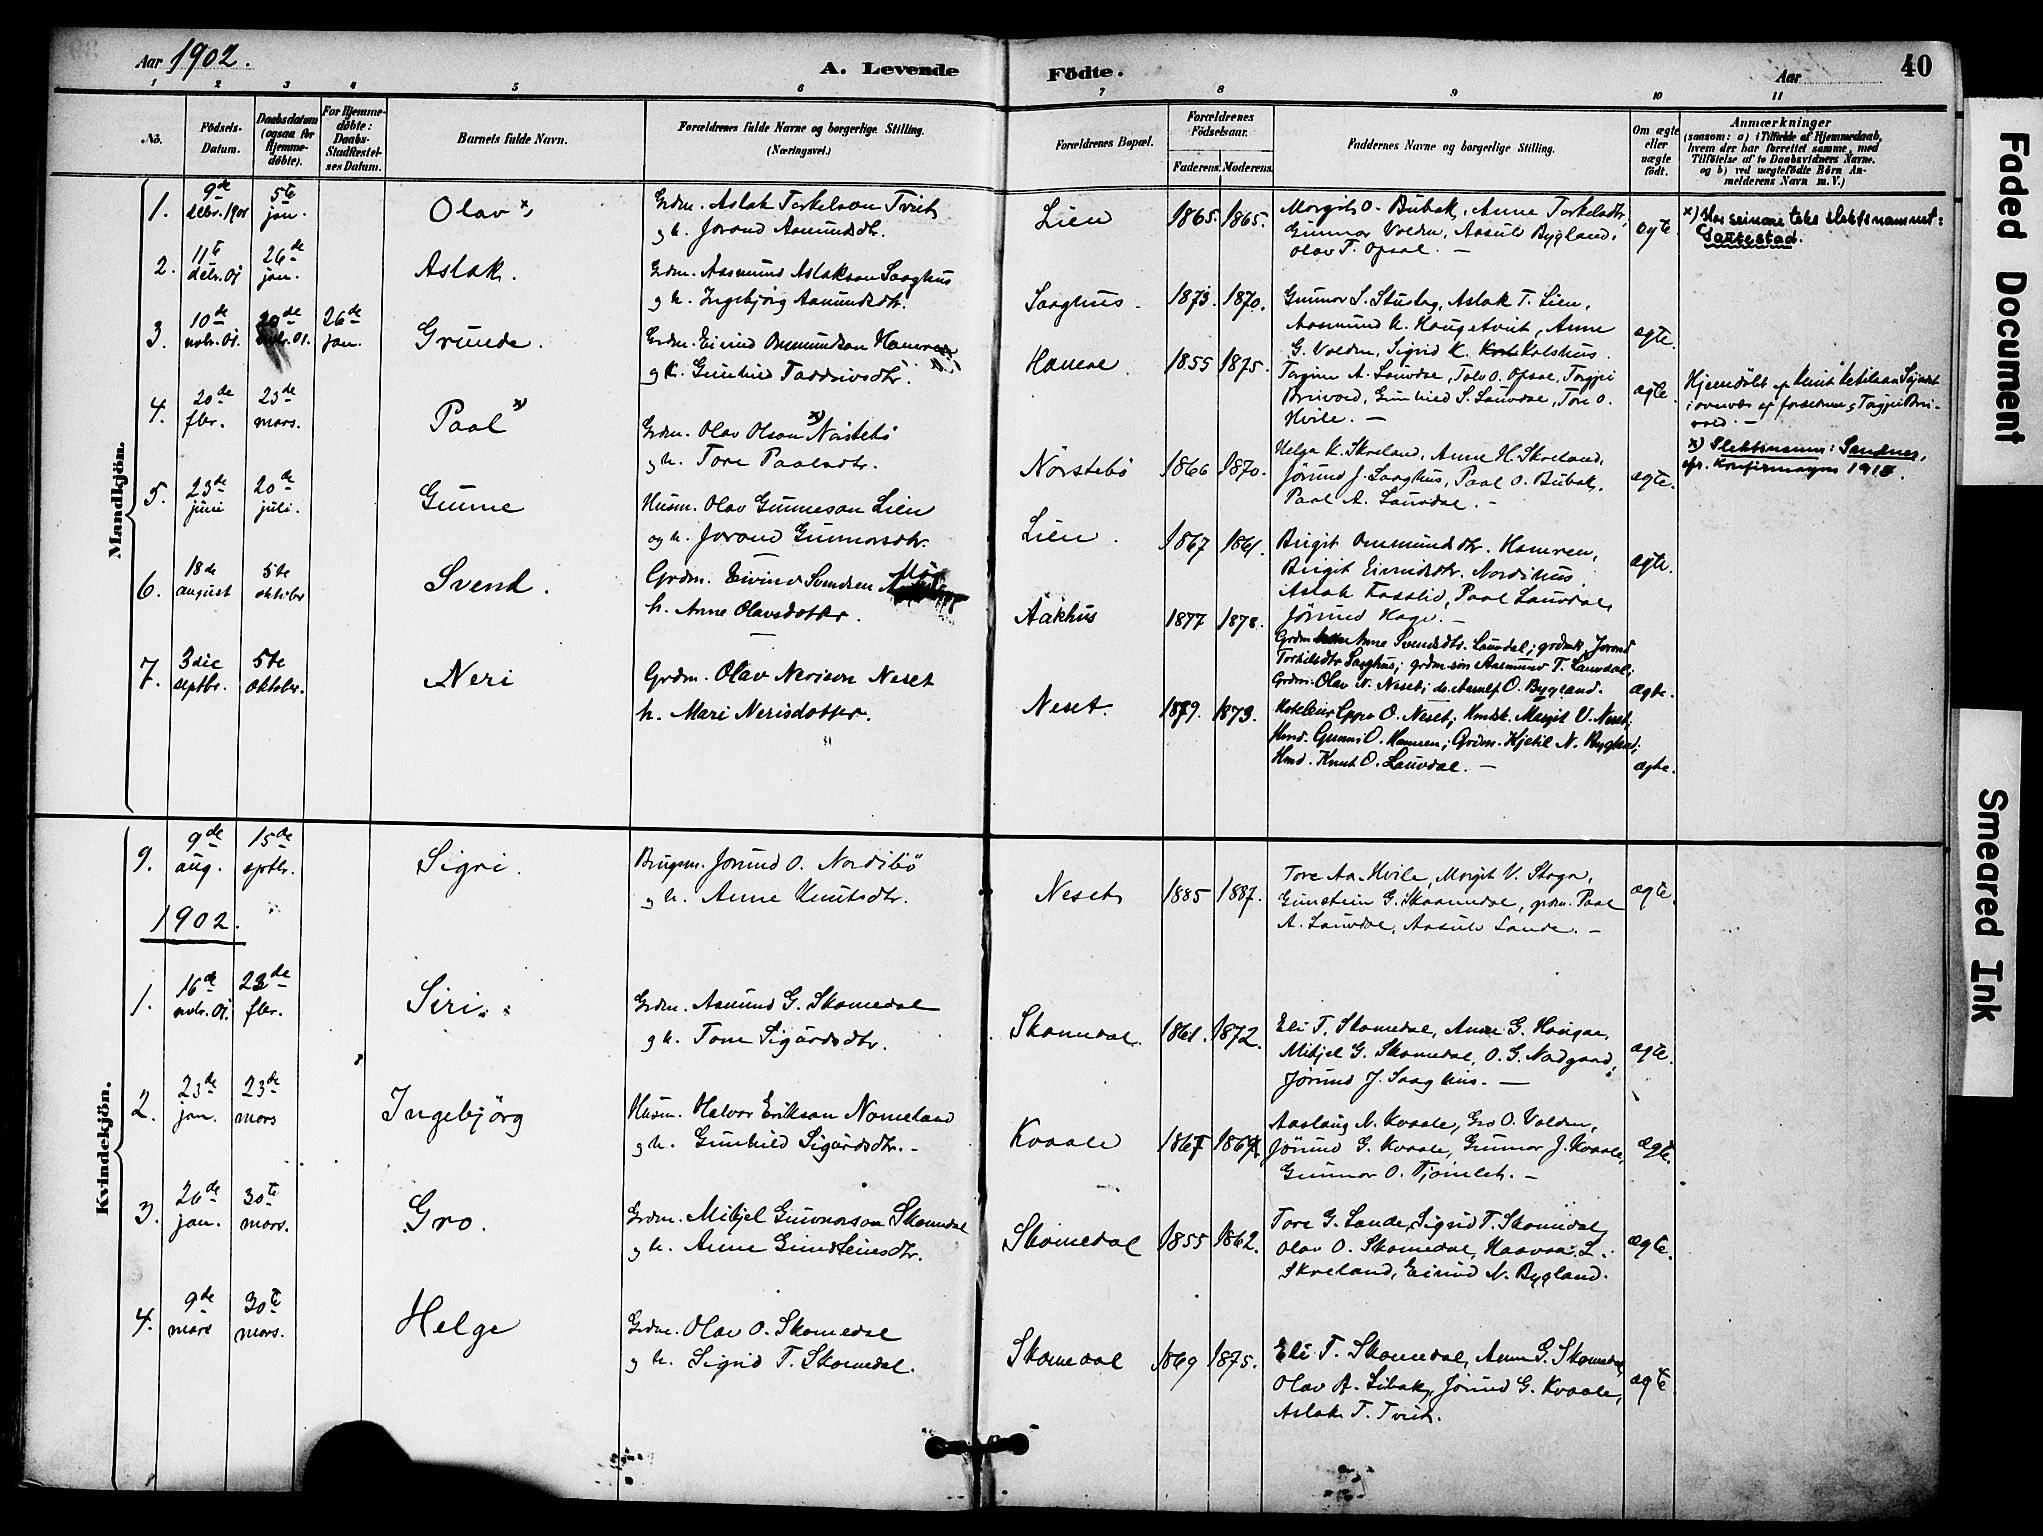 Aar 1902.
A. Levende Födte.
Aar
40
1 2 3 4 5 6 7 8 9 10 11
No.
Födsels-Datum.
Daabsdatum (ogsaa for Hjemmedøbte).
For Hjemmedøbte: Daabs-Stadfæstelses Datum.
Barnets fulde Navn.
Forældrenes fulde Navne og borgerlige Stilling.
(Næringsvei.)
Forældrenes Bopæl.
Forældrenes Födselsaar.
Faderens. Moderens.
Faddernes Navne og borgerlige Stilling.
Om ægte eller uægte født.
Anmærkninger
(saasom: a) i Tilfælde af Hjemmedaab,
hvem der har forrettet samme, med
Tilföielse af to Daabsvidners Navne.
og b) ved uægtefödte Börn Anmelderens
Navn m. V.)
Mandkjön.
1. 9de decbr. 1901 5te jan. Olav x)
Grdm. Aslak Torkelson Tveit
og h. Jorand Aamundsdtr.
Lien 1865. 1865.
Margit O. Bubak, Anne Torkelsdtr,
Gunnar Volden, Aasulv Bygland,
Olav T. Opsal. —
ægte.
x) Hos seinare teke slektsnamnet:
Tautestad.
2. 11te decbr. 01 26de jan. Aslak.
Grdm. Aasmund Aslakson Saaghus
og h. Ingebjörg Aamundsdtr.
Saaghus. 1873. 1870.
Gunnar S. Stutag, Aslak T. Lien,
Aasmund K. Haugetveit, Anne
G. Volden, Sigrid K. Kolshus.
ægte.
3. 10de novbr. 01. 20de novbr. 01. 26de jan. Grunde.
Grdm. Eivind Ommundson Hamren
og h. Gunhild Taddeivsdtr.
Hamre 1855 1875.
Torgim A. Lauvdae, Talv O. Opsae, Torgjei
Breivoed, Gunhild S. Lauvdae, Tore O.
Hvile. —
ægte.
Hjemdöbt af Knut Ketilson
i overvær af forældrene & Torgjei Breivoed. —
4. 20de fbr. 23de mars. Paal x)
Grdm. Olav Olson x) Nörstebö
og h. Tore Paalsdtr.
Nörstebö 1866 1870.
Helga K. Skreland, Anne H. Skreland,
Jörund J. Saaghus, Paal O. Bubak,
Paal A. Lauvdal. —
ægte.
x) Slektsnamn: Sandnes,
efr. Konfirmasjon 1918.
5. 23de juni 20de juli. Gunne
Husm. Olav Gunneson Lien
og h. Jorand Gunnarsdtr.
Lien. 1867 1861.
Birgit Ommundsdtr. Hamren,
Birgit Eivindsdtr. Nordihus.
Aslak Fasselid, Paal Lauvdal,
Jörund Hage. —
ægte.
6. 18de august 5te oktober Svend.
Grdm. Eivind Svendsen
h. Anne Olavsdotter.
Aakhus 1877 1878.
Grdm Anne Svendsdtr. Lauvdal; grdmk. Jorand
Torkilsdtr Saaghus; grdm.søn Aasmund T. Lauvdal;
Grdm. Olav N. Neset; do. Aanulf O. Bygland.
ægte.
7. 3die septbr. 5te oktober. Neri
Grdm. Olav Nerison Neset
h. Mari Nerisdotter.
Neset. 1879. 1873.
O. Neset; Kmdsk. Margit V. Neset;
Hmd. Gunni O. Hamren; Grdm. Kjetil N. Bygland;
Hmd. Knut O. Lauvdal. —
ægte.
Kvindekjön.
9. 9de aug. 15de septbr. Sigri.
Brugsm. Jörund O. Nordibö
og h. Anne Knutsdtr.
Neset 1885 1887.
Tore Aa. Hvile, Margit V. Stega,
Gunstein G. Skaamedae, grdm. Paal
A. Lauvdae, Aasulv Sande. —
ægte.
1902.
1. 16de novbr. 01. 23de fbr. Siri.
Grdm. Aamund G. Skomedal
og h. Tone Sigurdsdtr.
Skomedal. 1861. 1872.
Eli T. Skomedal, Anne G. Haugae,
Mikjel G. Skomedal, O. G. Nodgaard,
Jörund J. Saaghus. —
ægte.
2. 23de jan. 23de mars Ingebjörg
Husm. Halvor Erikson Nomeland
og h. Gunhild Sigurdsdtr. -
Kvaale 1867 1867.
Aaslaug N. Kvaale, Gro O. Volden,
Jörund G. Kvaale, Gunnar J. Kvaale,
Gunnar O. Tjomlet. —
ægte.
3. 26de jan. 30te mars. Gro.
Grdm. Mikjel Gunnarson Skomedal
og h. Anne Gundleiksdtr.
Skomedal 1855 1862.
Tore G. Sande, Sigrid T. Skomedal
Olav O. Skomedal, Haavaa L.
Skreland, Eivind N. Bygland.
ægte.
4. 9de mars 30te mars. Helge
Grdm. Olav O. Skomedal
og h. Sigrid T. Skomedal.
Skomedal 1869 1875.
Eli T. Skomedal, Anne G. Skomedal,
Olav A. Libak, Jörund G. Kvaale,
Aslak T. Tveit.
ægte
Faded Document
Smeared Ink